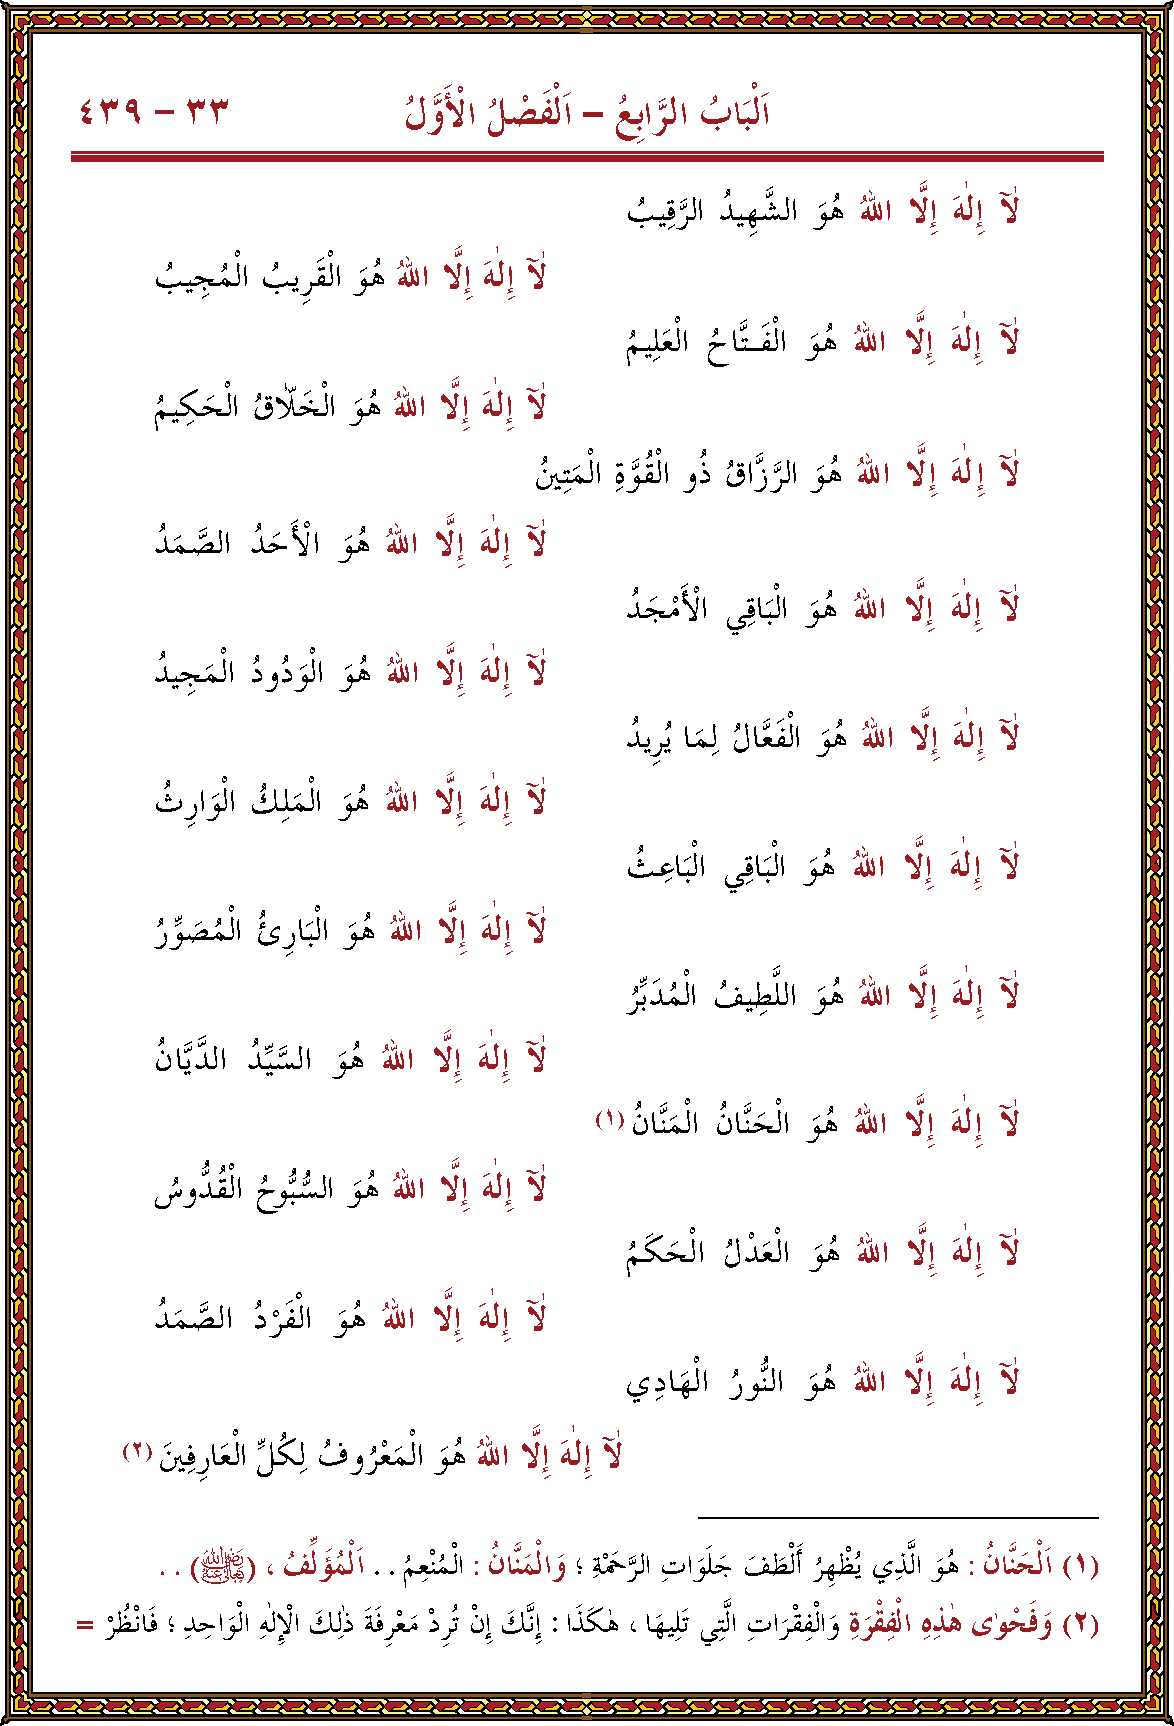 اَلْبَابُ الرَّابِعُ – اَلْفَصْلُ الْأَوَّلُ ٣٣ – ٤٣٩
لَآ إِلٰهَ إِلَّا اللهُ هُوَ الشَّهِيدُ الرَّقِيبُ
لَآ إِلٰهَ إِلَّا اللهُ هُوَ الْقَرِيبُ الْمُجِيبُ
لَآ إِلٰهَ إِلَّا اللهُ هُوَ الْفَتَّاحُ الْعَلِيمُ
لَآ إِلٰهَ إِلَّا اللهُ هُوَ الْخَلَّاقُ الْحَكِيمُ
لَآ إِلٰهَ إِلَّا اللهُ هُوَ الرَّزَّاقُ ذُو الْقُوَّةِ الْمَتِينُ
لَآ إِلٰهَ إِلَّا اللهُ هُوَ الْأَحَدُ الصَّمَدُ
لَآ إِلٰهَ إِلَّا اللهُ هُوَ الْبَاقِي الْأَمْجَدُ
لَآ إِلٰهَ إِلَّا اللهُ هُوَ الْوَدُودُ الْمَجِيدُ
لَآ إِلٰهَ إِلَّا اللهُ هُوَ الْفَعَّالُ لِمَا يُرِيدُ
لَآ إِلٰهَ إِلَّا اللهُ هُوَ الْمَلِكُ الْوَارِثُ
لَآ إِلٰهَ إِلَّا اللهُ هُوَ الْبَاقِي الْبَاعِثُ
لَآ إِلٰهَ إِلَّا اللهُ هُوَ الْبَارِئُ الْمُصَوِّرُ
لَآ إِلٰهَ إِلَّا اللهُ هُوَ اللَّطِيفُ الْمُدَبِّرُ
لَآ إِلٰهَ إِلَّا اللهُ هُوَ السَّيِّدُ الدَّيَّانُ
لَآ إِلٰهَ إِلَّا اللهُ هُوَ الْحَنَّانُ الْمَنَّانُ (١)
لَآ إِلٰهَ إِلَّا اللهُ هُوَ السُّبُّوحُ الْقُدُّوسُ
لَآ إِلٰهَ إِلَّا اللهُ هُوَ الْعَدْلُ الْحَكَمُ
لَآ إِلٰهَ إِلَّا اللهُ هُوَ الْفَرْدُ الصَّمَدُ
لَآ إِلٰهَ إِلَّا اللهُ هُوَ النُّورُ الْهَادِي
لَآ إِلٰهَ إِلَّا اللهُ هُوَ الْمَعْرُوفُ لِكُلِّ الْعَارِفِينَ (٢)
(١) اَلْحَنَّانُ : هُوَ الَّذِي يُظْهِرُ أَلْطَفَ جَلَوَاتِ الرَّحْمَةِ ؛ وَالْمَنَّانُ : الْمُنْعِمُ . . اَلْمُؤَلِّفُ ، (رَضِيَ اللهُ تَعَالَى عَنْهُ) . .
(٢) وَفَحْوٰى هٰذِهِ الْفِقْرَةِ وَالْفِقْرَاتِ الَّتِي تَلِيهَا ، هٰكَذَا : إِنَّكَ إِنْ تُرِدْ مَعْرِفَةَ ذٰلِكَ الْإِلٰهِ الْوَاحِدِ ؛ فَانْظُرْ =